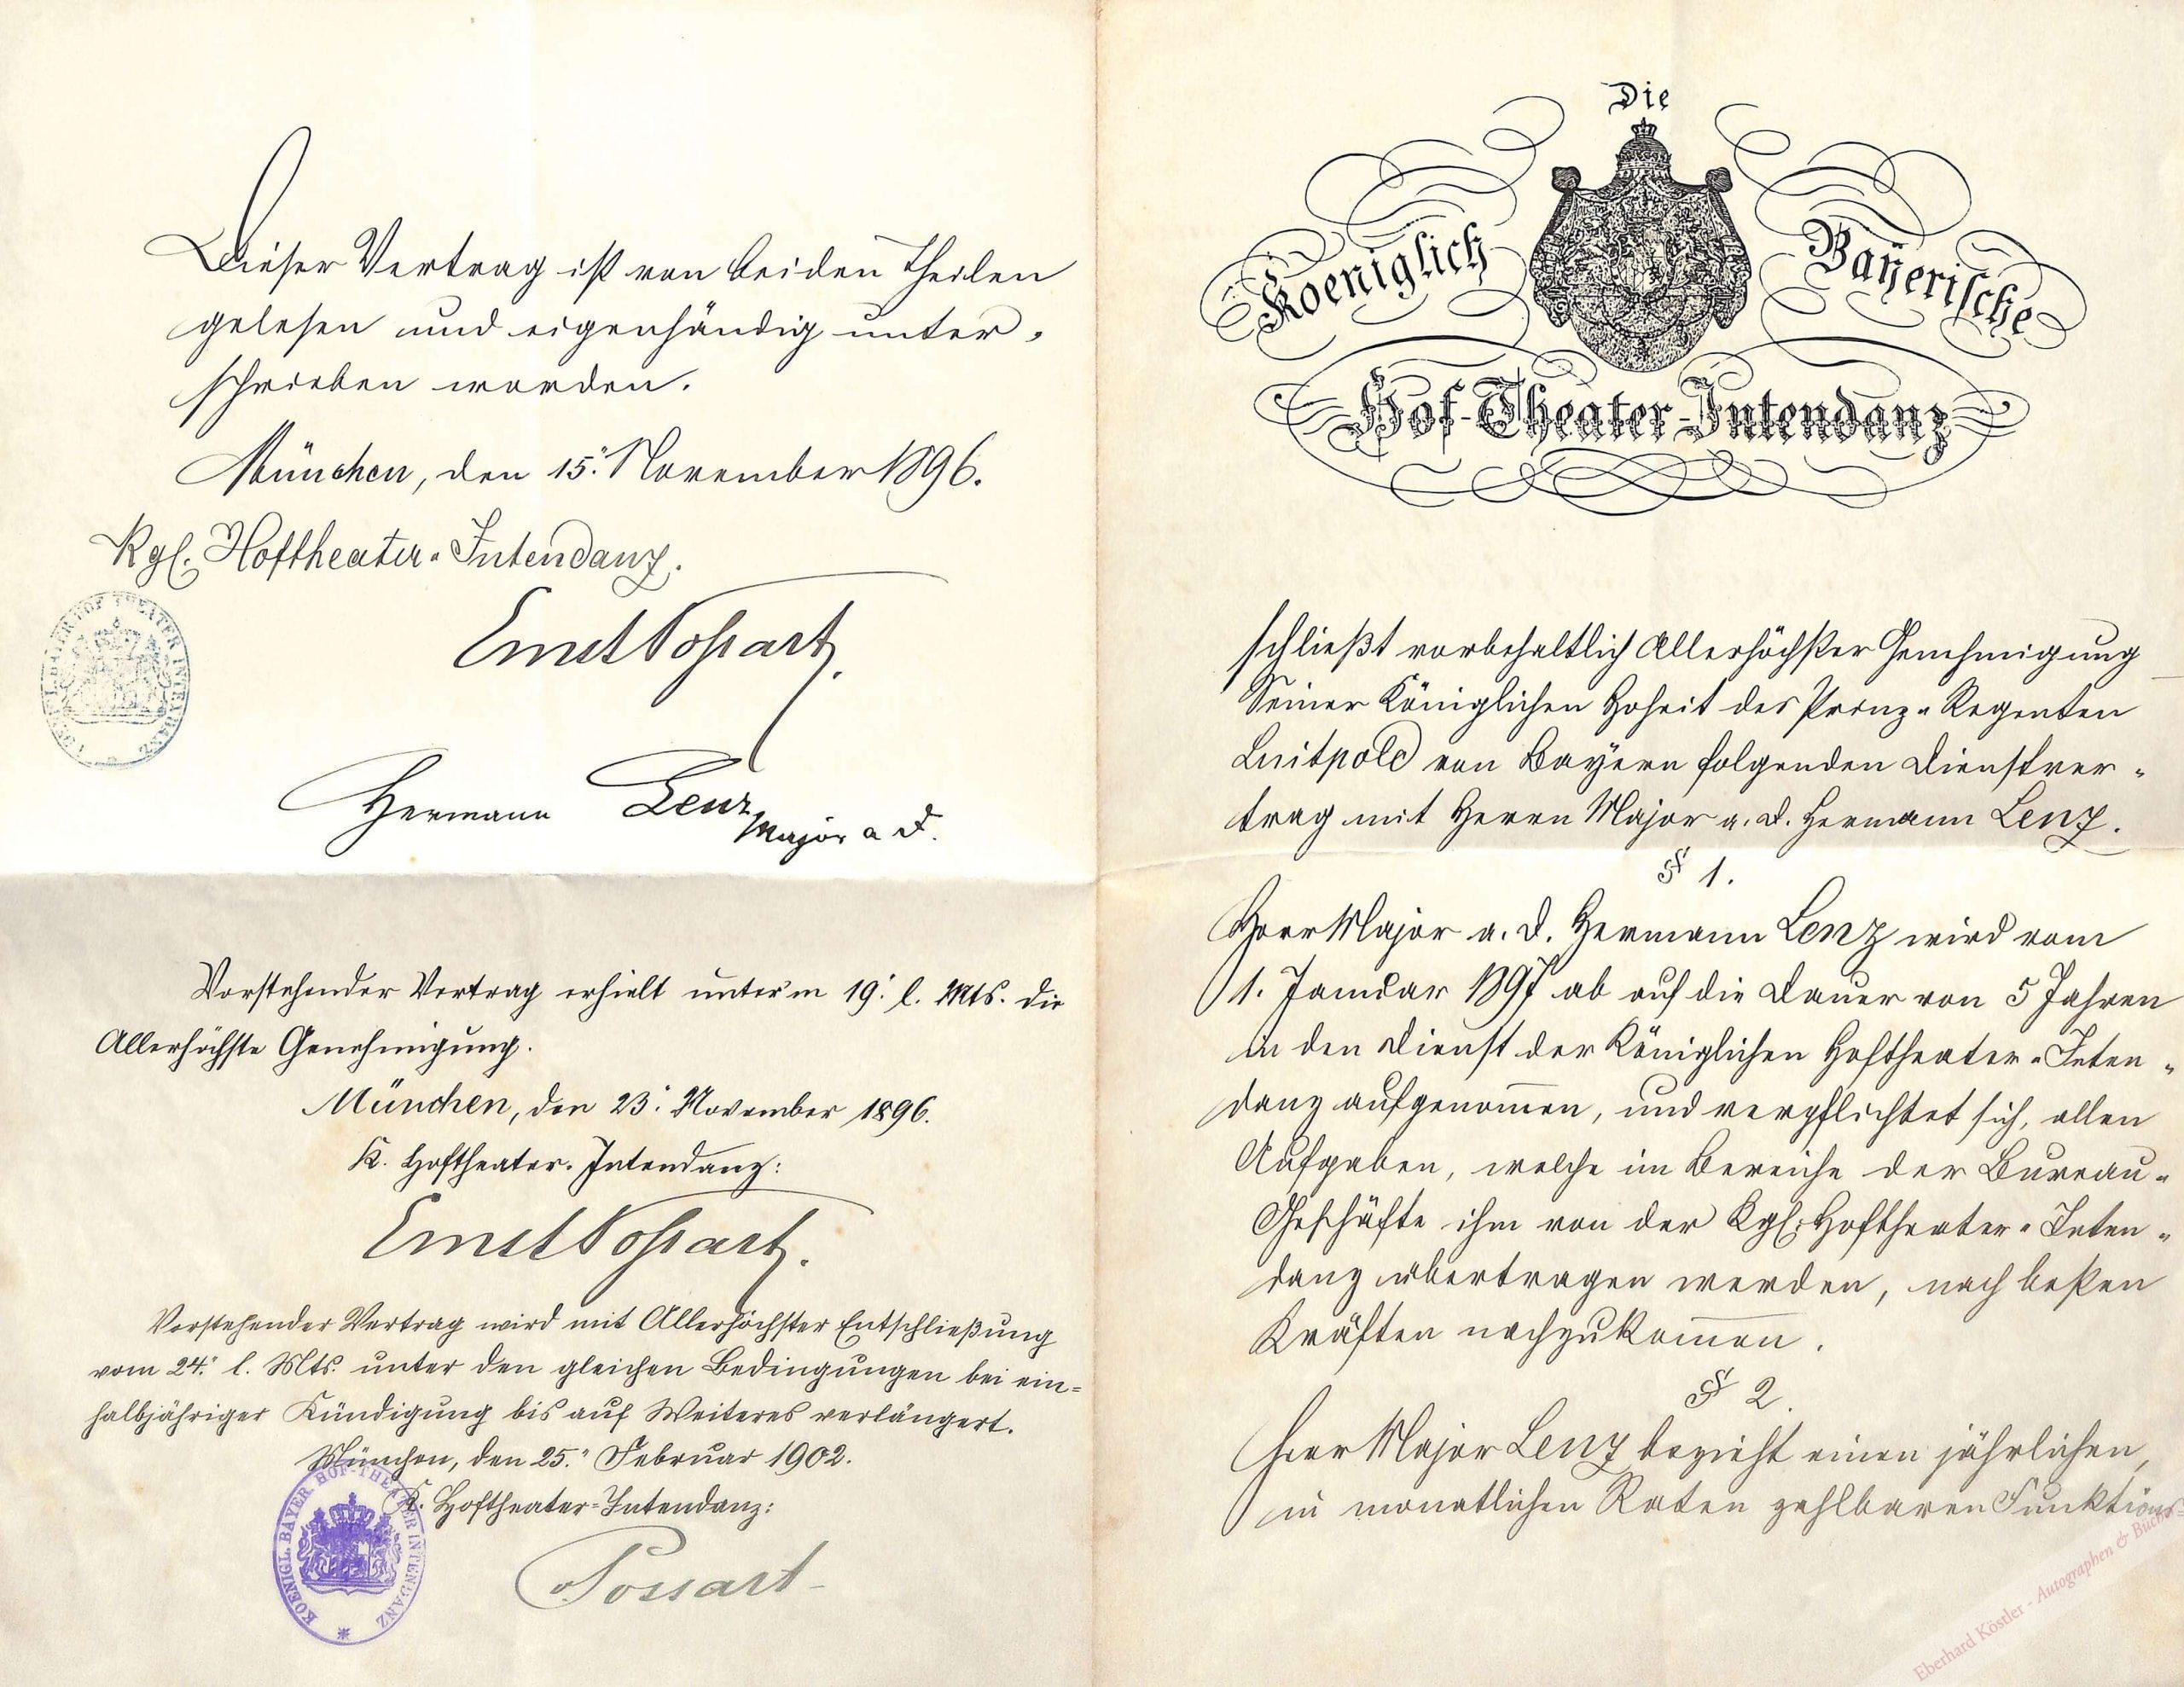 Dieser Vertrag ist von beiden Theilen
gelesen und eigenhändig unter-
schrieben worden.
München, den 15. November 1896.
Kgl. Hoftheater-Intendanz.
Ernst Possart.
Hermann Lenz
Major a. D.
Vorstehender Vertrag erhielt unterm 19. l. Mts. die
Allerhöchste Genehmigung.
München, den 23. November 1896.
K. Hoftheater-Intendanz:
Ernst Possart.
Vorstehender Vertrag wird mit Allerhöchster Entschließung
vom 24. l. Mts. unter den gleichen Bedingungen bei ein-
halbjähriger Kündigung bis auf Weiteres verlängert.
München, den 25. Februar 1902.
K. Hoftheater-Intendanz:
KOENIGL. BAYER HOF-THEATER INTENDANZ
Possart
Die
Koeniglich Bayerische
Hof-Theater-Intendanz
schließt vorbehaltlich Allerhöchster Genehmigung
Seiner Königlichen Hoheit des Prinz-Regenten
Luitpold von Bayern folgenden Dienstver-
trag mit Herrn Major a. D. Hermann Lenz.
§ 1.
Herr Major a. D. Hermann Lenz wird vom
1. Januar 1897 ab auf die Dauer von 5 Jahren
in den Dienst der Königlichen Hoftheater-Inten-
danz aufgenom̄en, und verpflichtet sich, allen
Aufgaben, welche im Bereiche der Bureau-
Geschäfte ihm von der Kgl. Hoftheater-Inten-
danz übertragen werden, nach besten
Kräften nachzukom̄en.
§ 2.
Herr Major Lenz bezieht einen jährlichen,
in monatlichen Raten zahlbaren Funktions-
Eberhard Köstler - Autographen & Bücher